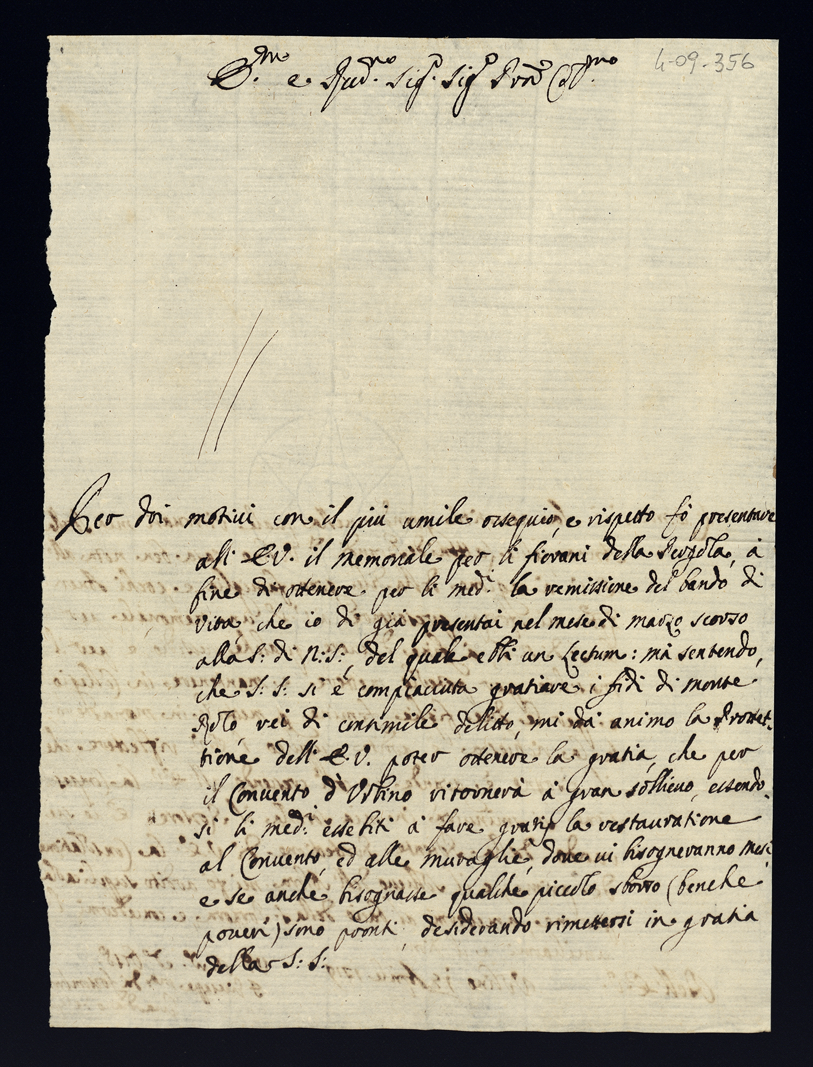 4-09-356
Em.mo e Rud.mo Sig.r Sig.r Pron Col.mo
Per doi motivi con il più umile ossequio, e rispetto fò presentare
all' E.V. il memoriale per li fiorani della Pergola, à
fine di ottenere per li med.i la remissione del bando di
vita che io di già presentai nel mese di marzo scorso
alla S: di N: S:, del quale ebbi un Lectum: mà sentendo,
che S: S: si è compiacciuta gratiare i fidi di monte
Polo, rei di consimile delitto, mi dà animo la Protet-
tione dell' E.V. poter ottenere la gratia, che per
il Convento d'Urbino ritornerà à gran sollievo, essendo-
si li med.i essebiti à fare gratis la restauratione
al Convento, ed alle muraglie, dove vi bisogneranno mesi
e se anche bisognasse qualche piccolo sborso (benche
poveri) sono pronti, desiderando rimettersi in gratia
della S: S: